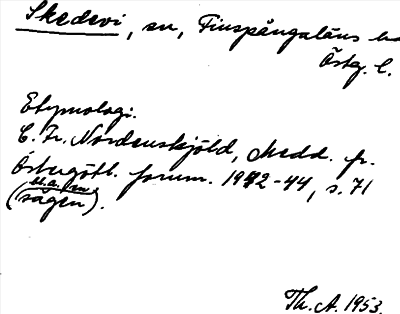 Skedevi, sn, Finspångaläns hd
Östg. l.
Etymologi.
C. Fr. Nordenskjöld, Medd. fr.
Östergötl. fornm. 1942-44, s. 71
(bl.a. om
sägen).
Th. A. 1953.